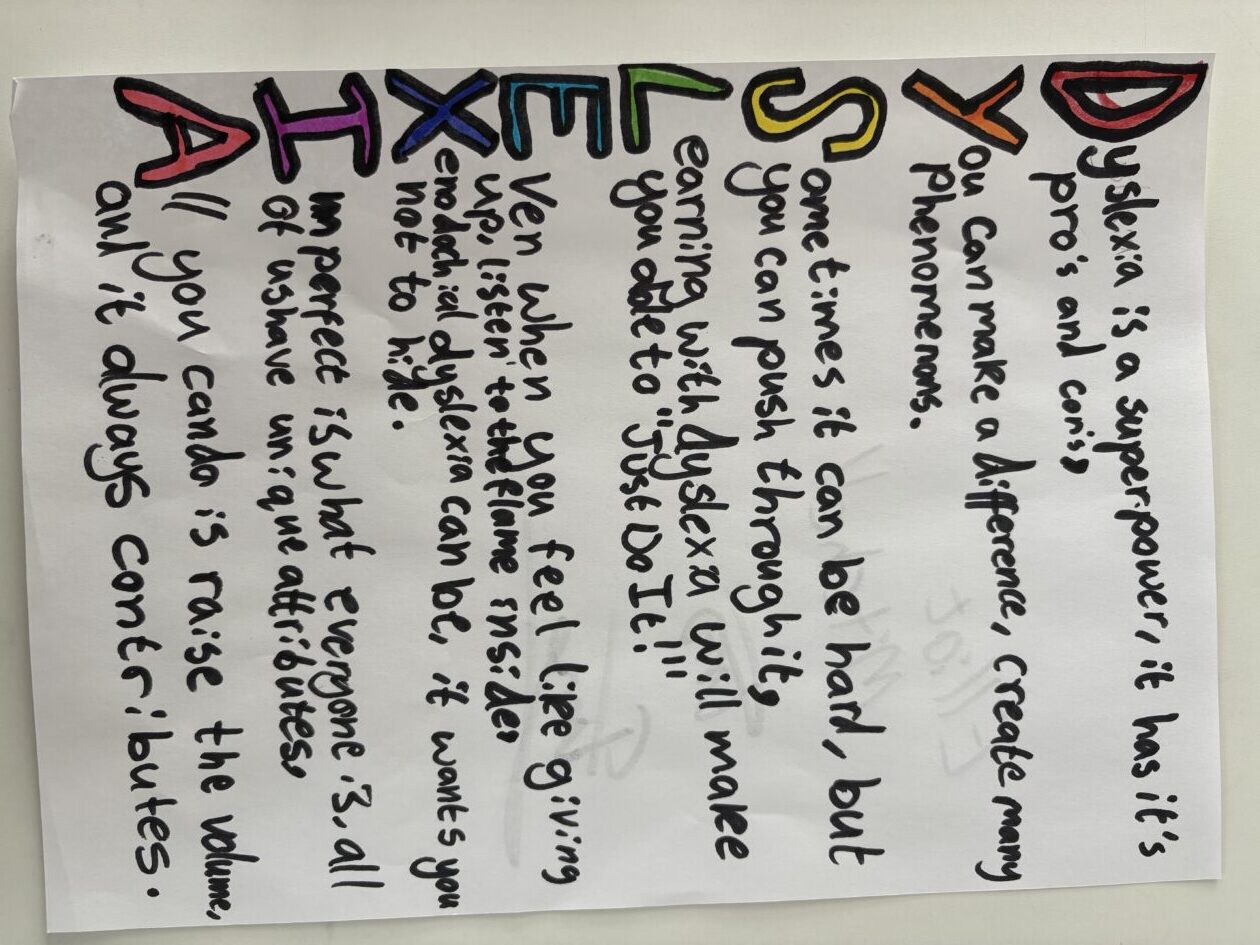 Dyslexia is a superpower, it has it's
pro's and con's,
You can make a difference, create many
Phenomenoms.
Sometimes it can be hard, but
you can push through it,
Learning with dyslexia will make
you able to "Just Do It!"
Even when you feel like giving
up, listen to the flame inside,
Xenodochial dyslexia can be, it wants you
not to hide.
Imperfect is what everyone is, all
of us have unique attributes,
All you can do is raise the volume,
and it always contributes.